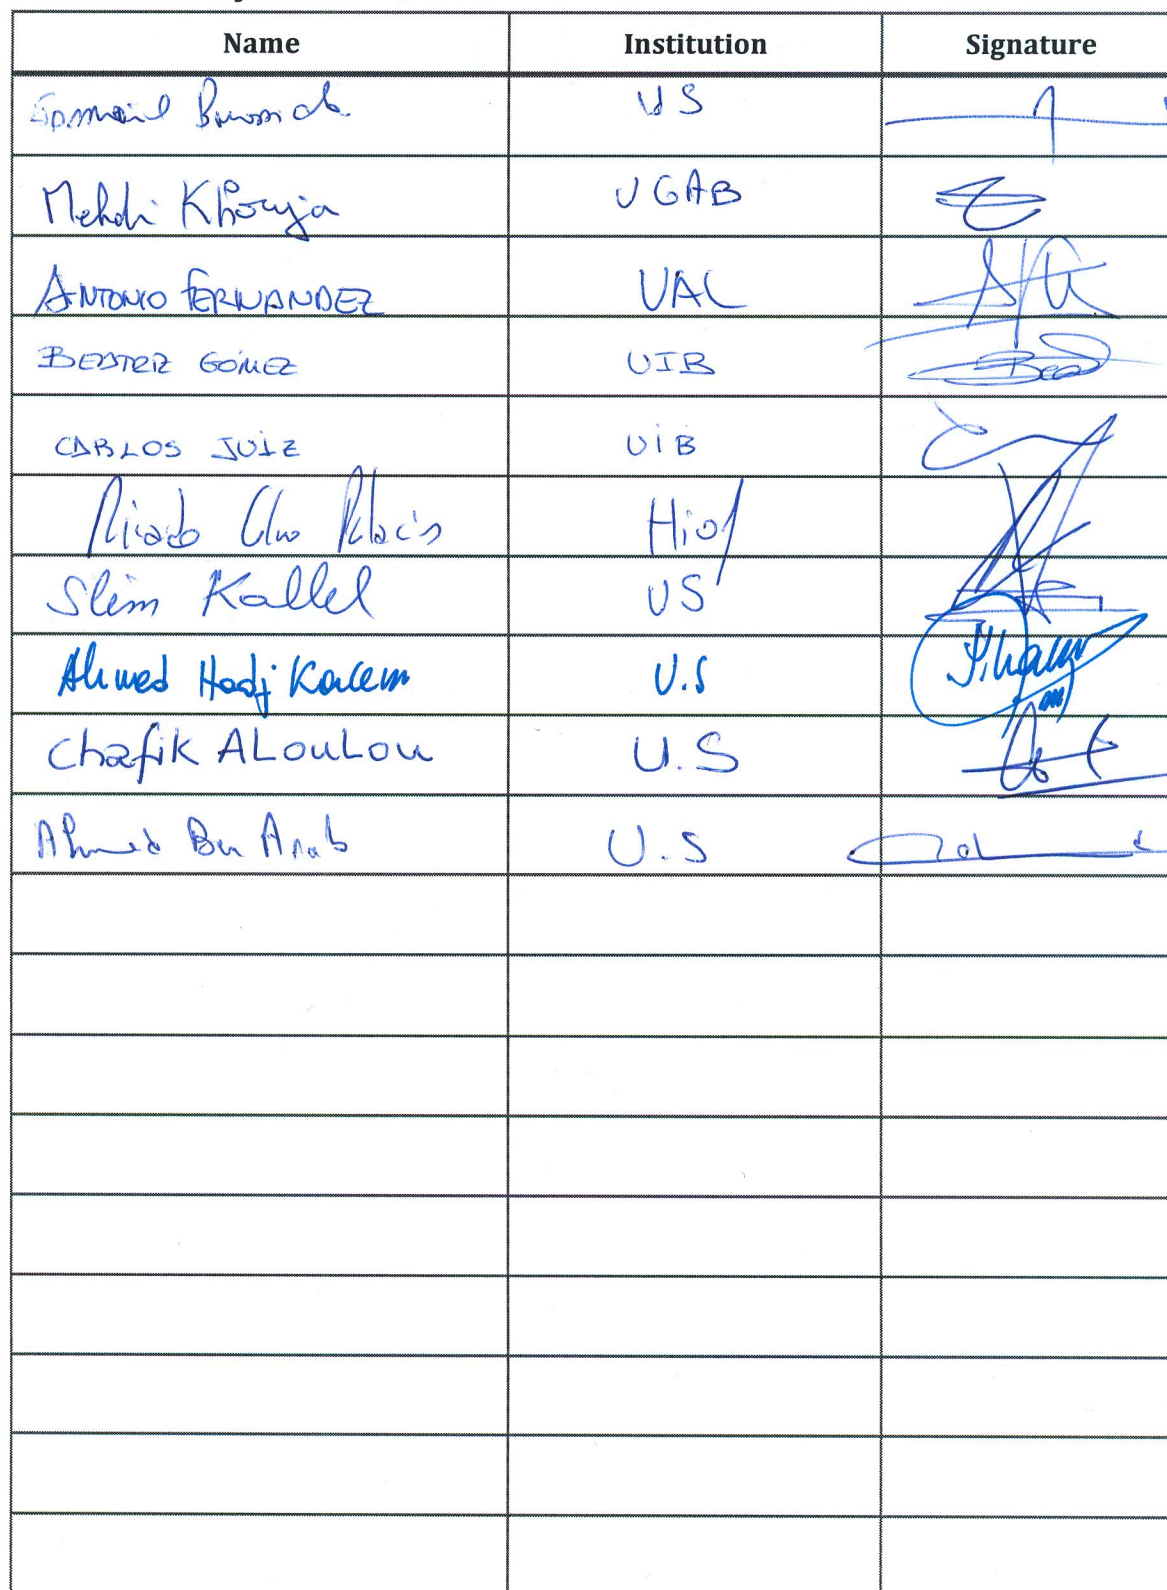 Name Institution Signature
US
Mehdi Khouja UGAB
ANTONIO FERNANDEZ UAL
BEATRIZ GÓMEZ UIB
CARLOS JUIZ UIB
Slim Kallel US
Ahmed Hadj Kacem U.S
Chafik ALOULOU U.S
Ahmed Ben Arab U.S